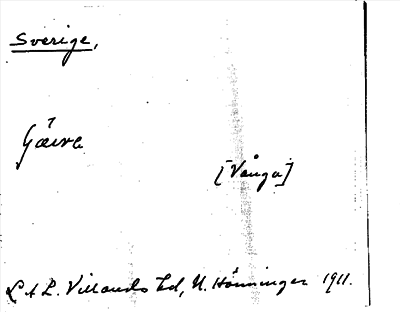 Sverige,
[Vånga]
L A L. Villands hd, N. Hönninger 1911.